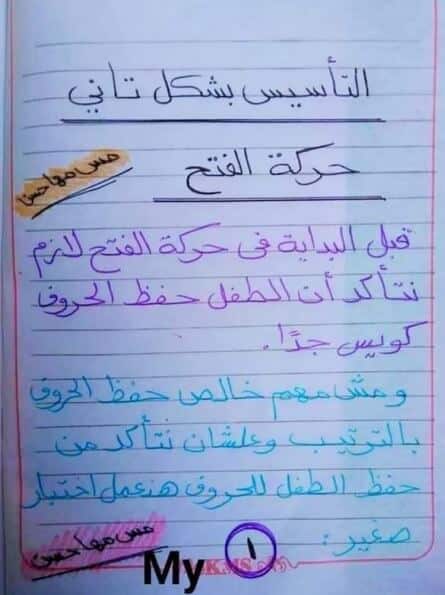 التأسيس بشكل تاني
حركة الفتح
مس مها حسن
قبل البداية في حركة الفتح لازم
نتأكد أن الطفل حفظ الحروف
كويس جدًا.
ومش مهم خالص حفظ الحروف
بالترتيب وعلشان نتأكد من
حفظ الطفل للحروف هنعمل اختبار
صغير:
مس مها حسن
My
١